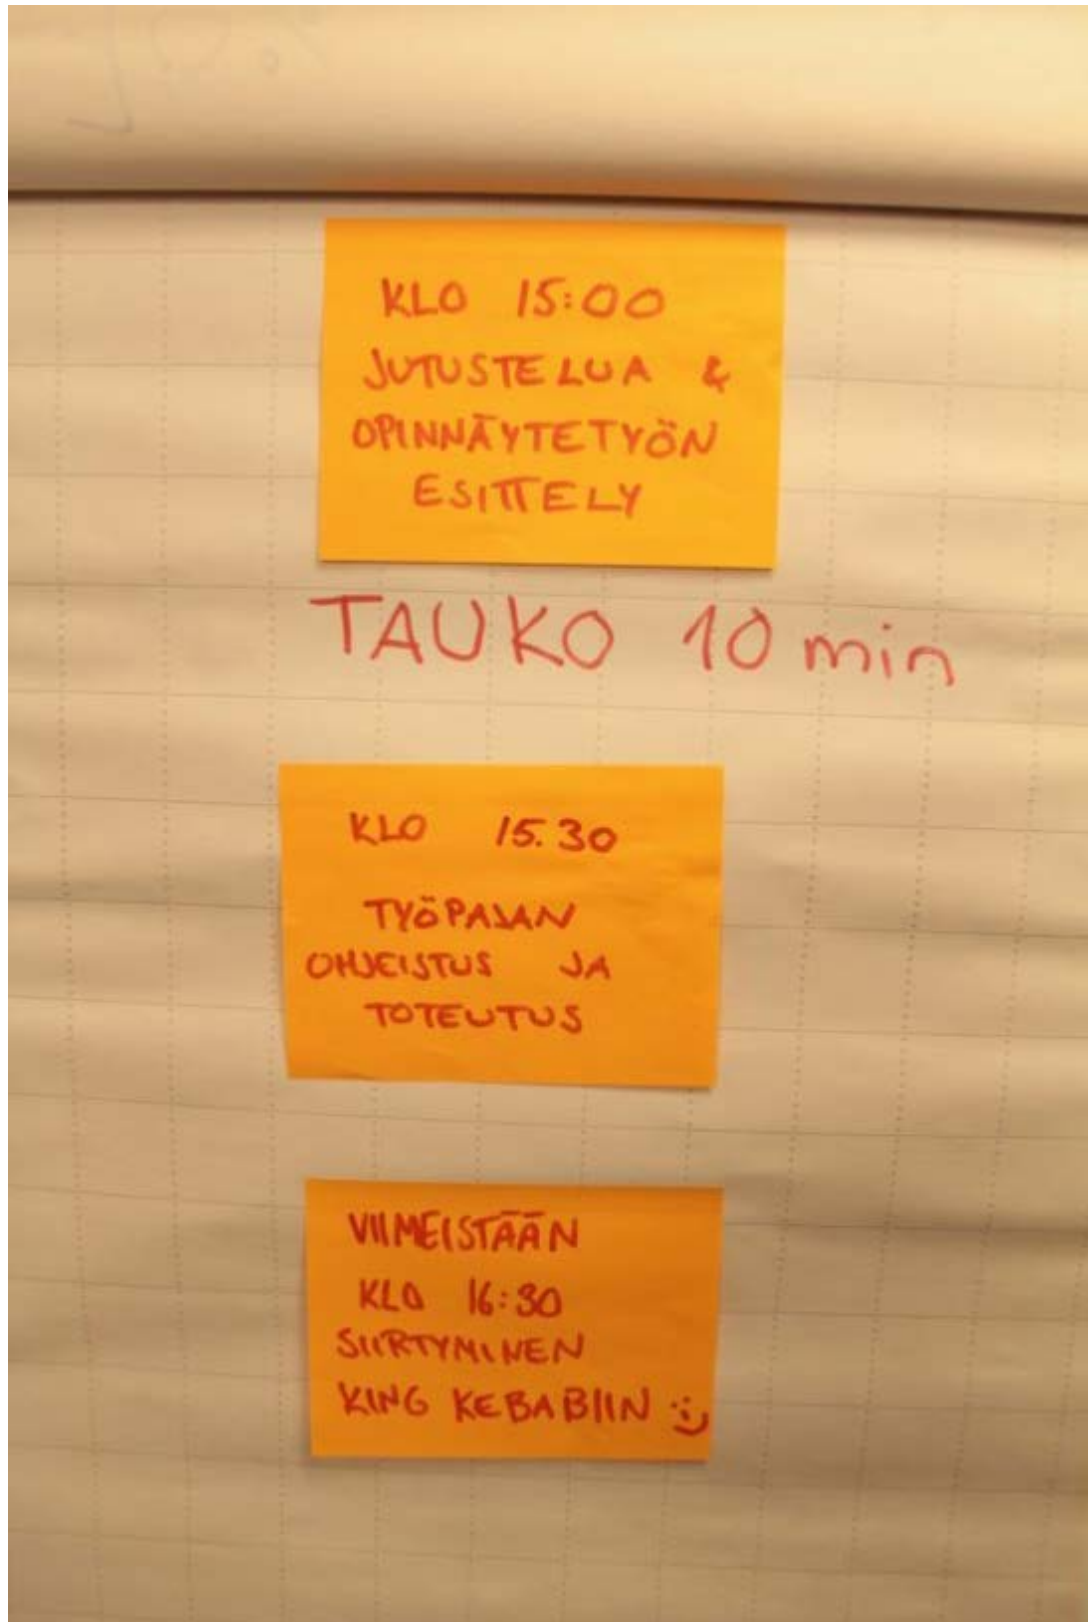 KLO 15:00
JUTUSTELUA &
OPINNÄYTETYÖN
ESITTELY
TAUKO 10 min
KLO 15.30
TYÖPAJAN
OHJEISTUS JA
TOTEUTUS
VIIMEISTÄÄN
KLO 16:30
SIIRTYMINEN
KING KEBABIIN :)